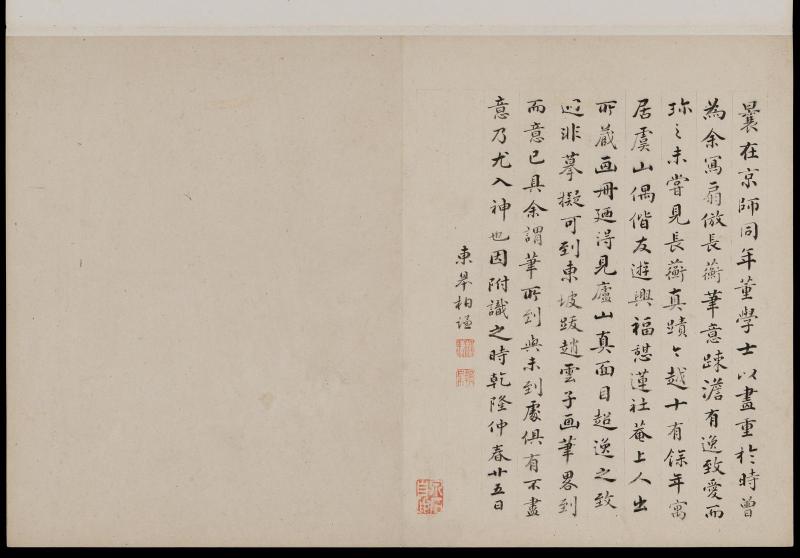 曩在京師同年董學士以畫重於時曾
為余寫扇倣長蘅筆意踈澹有逸致愛而
珎之未嘗見長蘅真蹟〻越十有餘年寓
居虞山偶偕友遊興福憇蓮社菴上人出
所藏画冊廼得見廬山真面目超逸之致
迥非摹擬可到東坡跋趙雲子画筆畧到
而意已具余謂筆所到與未到處俱有不盡
意乃尤入神也因附識之時乾隆仲春廿五日
東皋柏謙